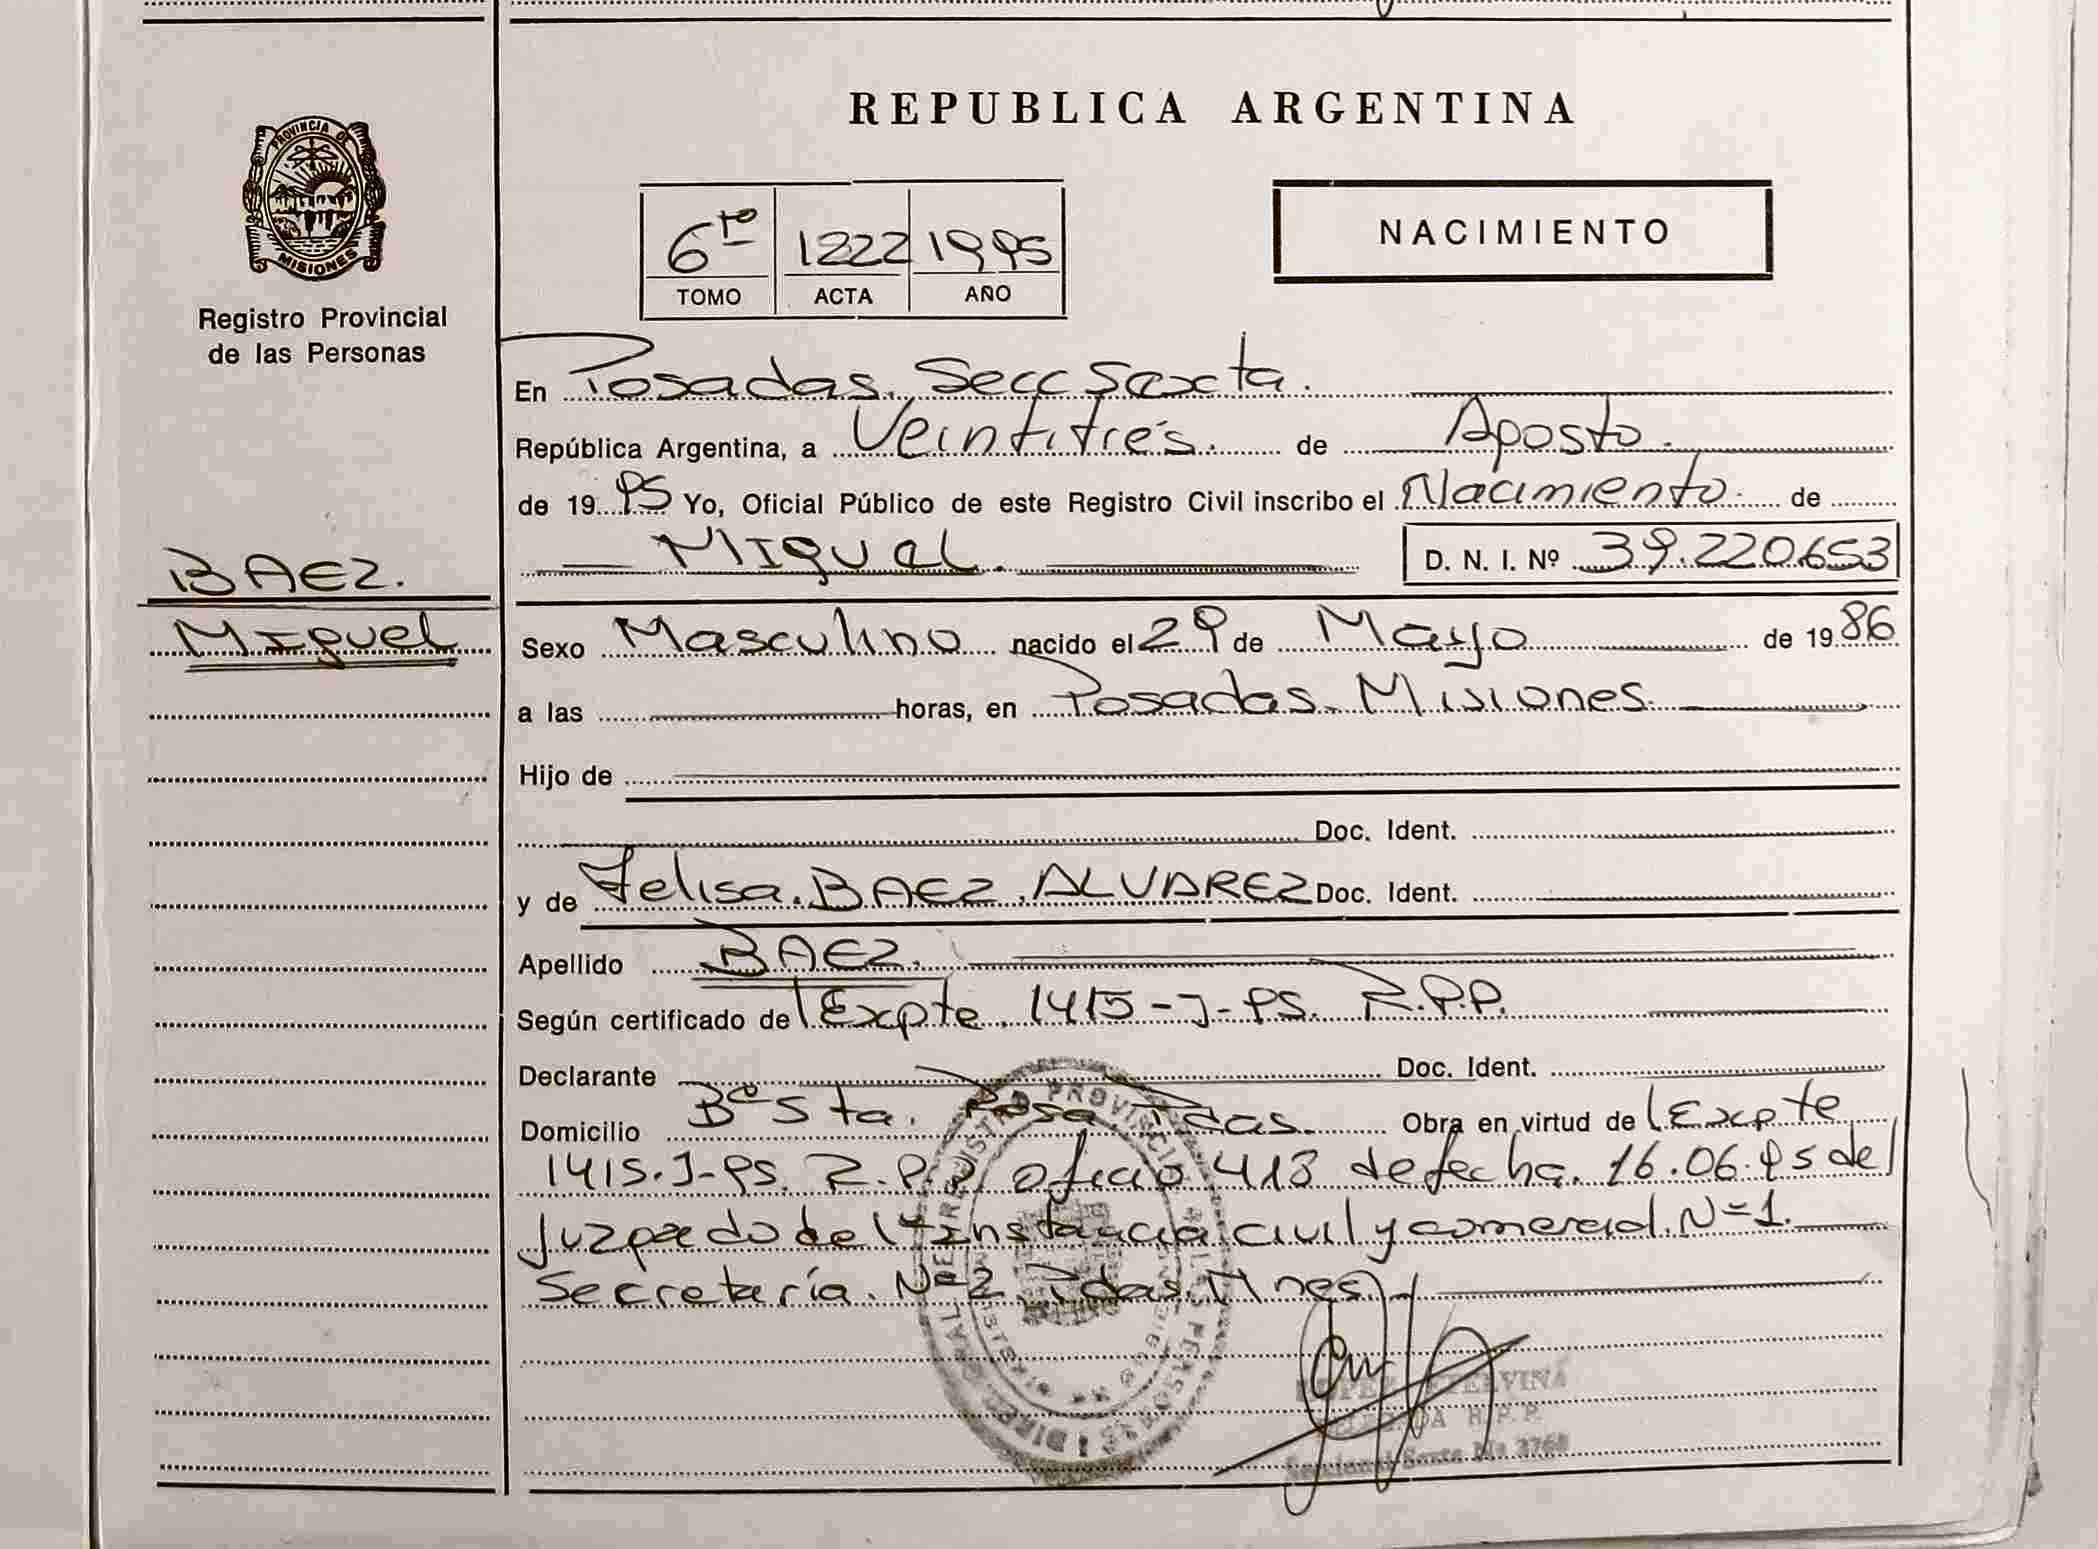 PROVINCIA DE
MISIONES
Registro Provincial
de las Personas
BAEZ.
Miguel
REPUBLICA ARGENTINA
6to 1222 1995
TOMO ACTA AÑO
NACIMIENTO
En Posadas. Secc Sexta.
República Argentina, a Veintitrés. de Agosto.
de 19 95 Yo, Oficial Público de este Registro Civil inscribo el Nacimiento. de
Miguel. D. N. I. Nº 39.220.653
Sexo Masculino nacido el 29 de Mayo de 19 86
a las horas, en Posadas. Misiones.
Hijo de
Doc. Ident.
y de Felisa. BAEZ. ALVAREZ Doc. Ident.
Apellido BAEZ.
Según certificado de Expte. 1415-J-95. R.P.P.
Declarante Doc. Ident.
Domicilio Bº Sta. Rosa Pdas. Obra en virtud de Expte
1415-J-95. R.P.P. oficio 413 de fecha. 16.06.95 del
Juzgado de 1º Instancia civil y comercial. Nº 1.
Secretaría. Nº 2. Pdas. Mnes.
LOPEZ ETELVINA
R.P.P.
Seccional Sexta